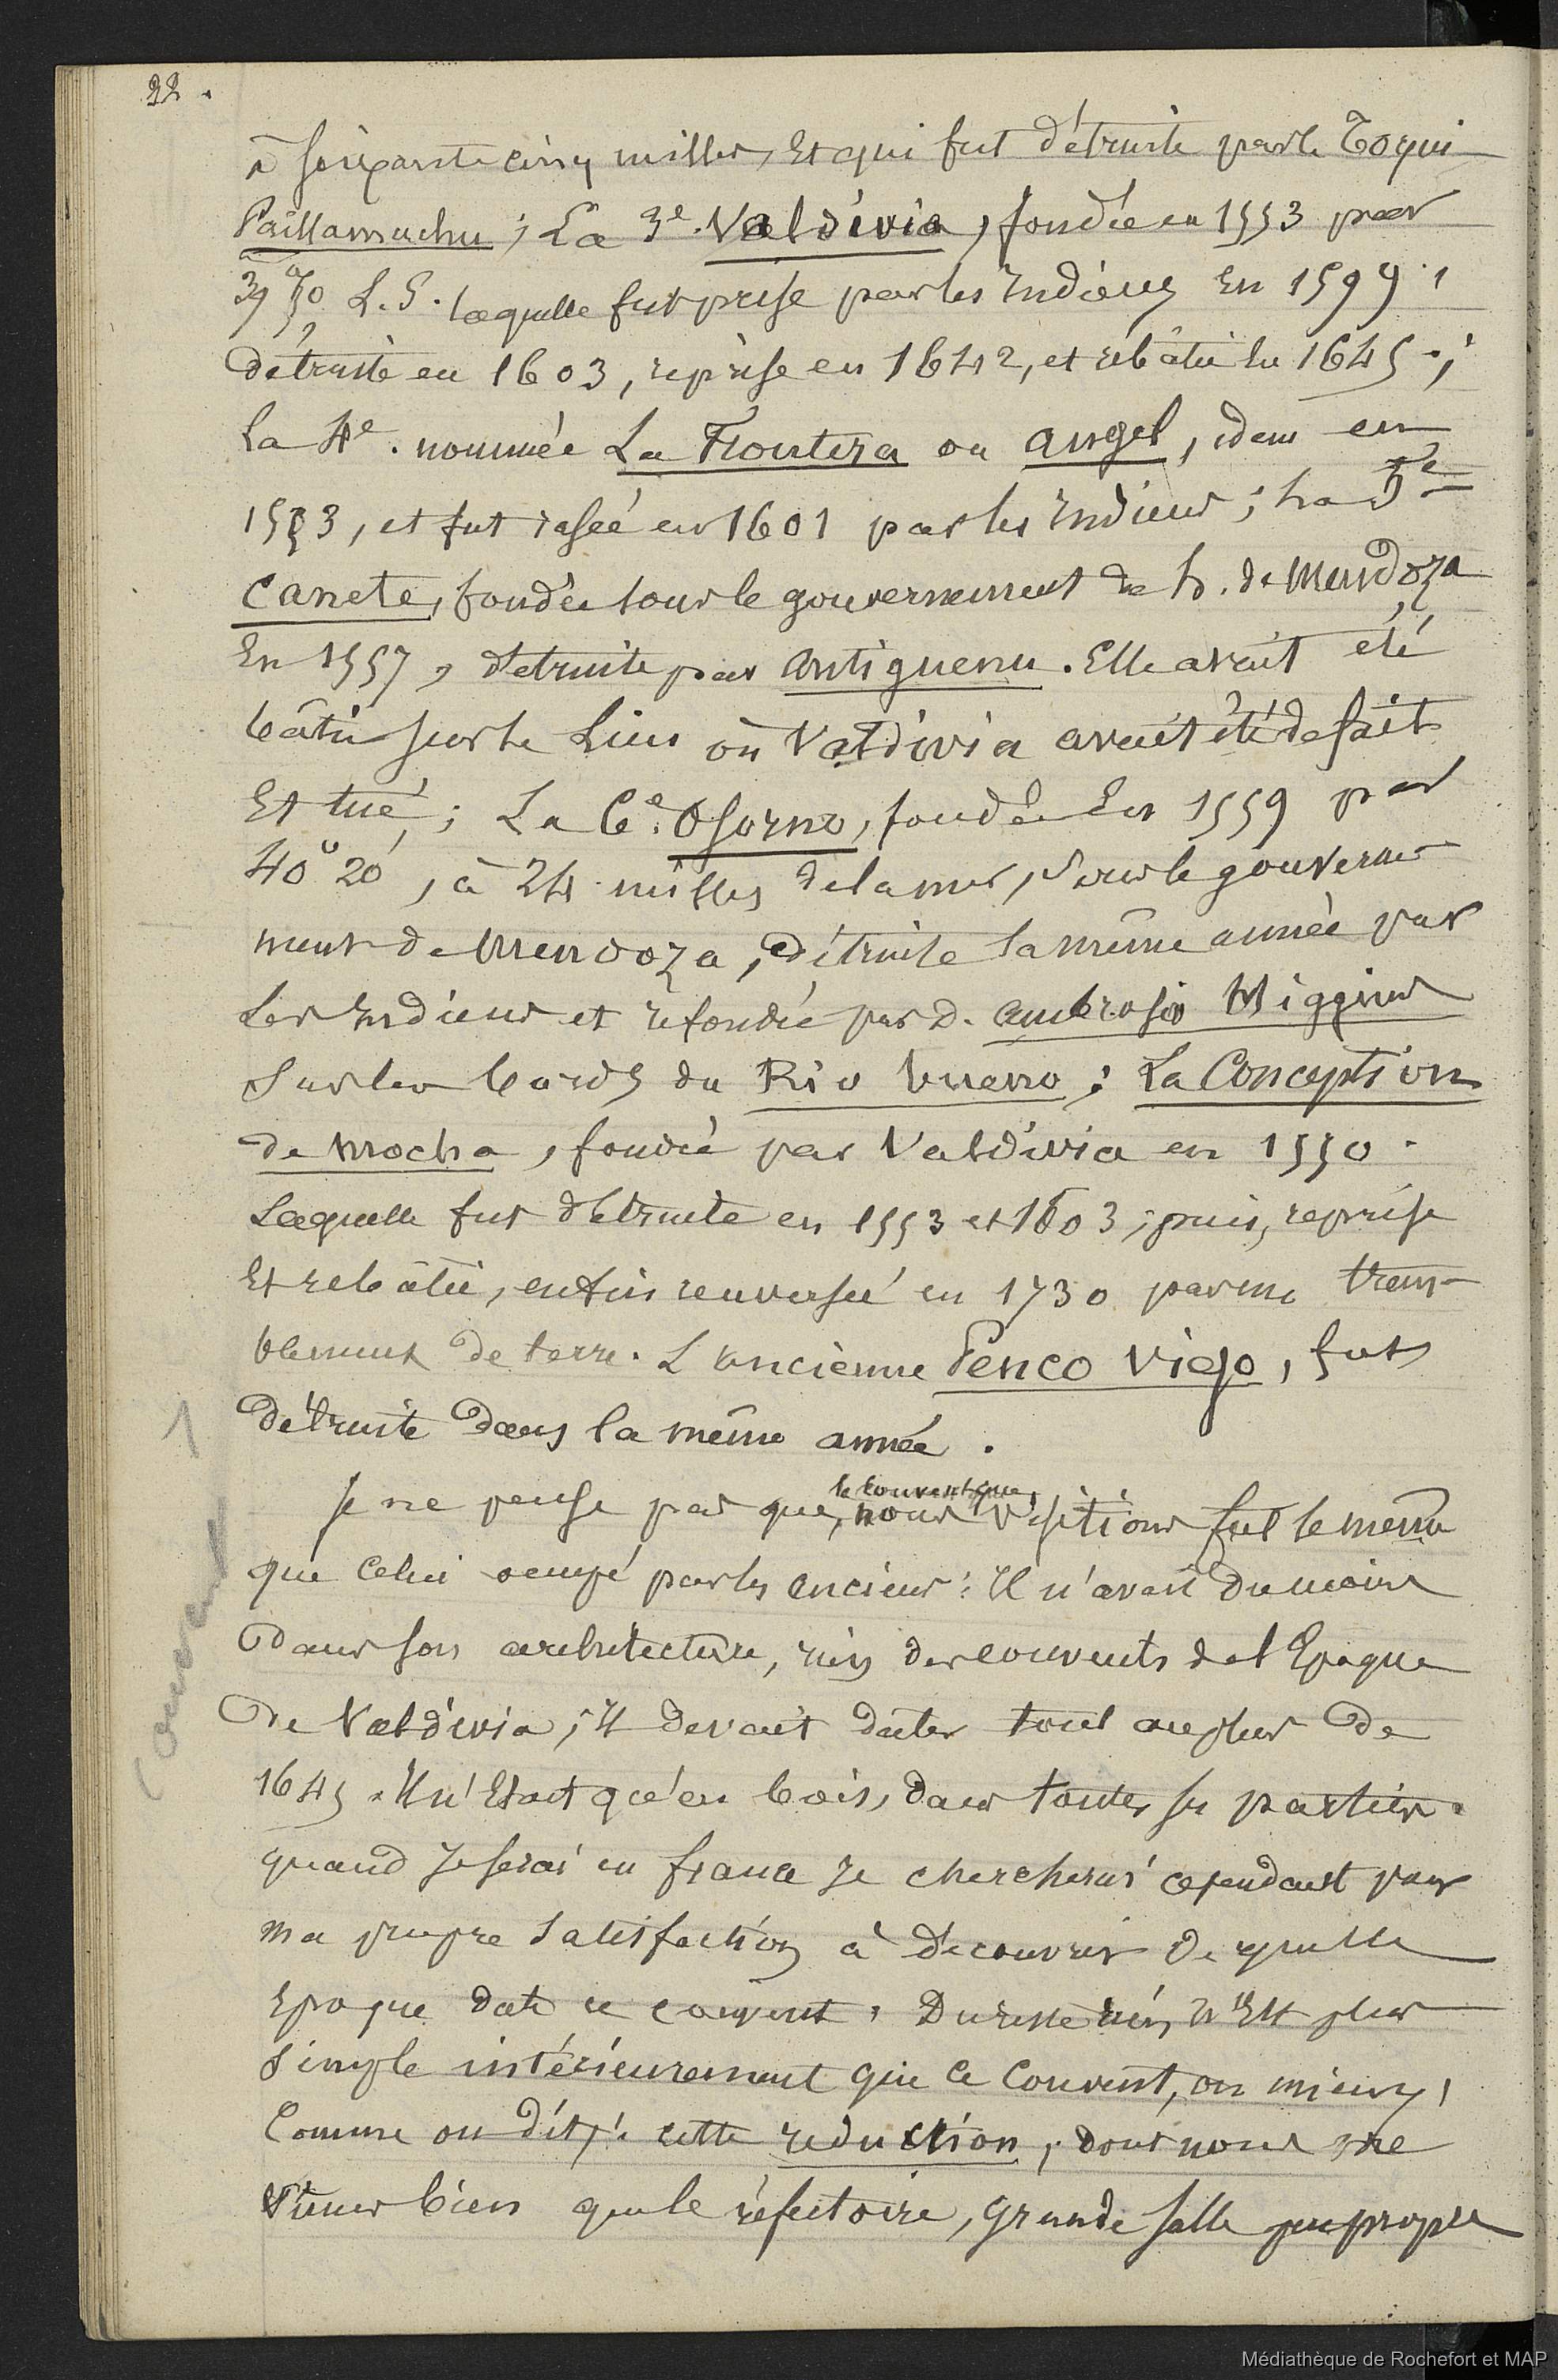 22.
à soixante cinq milles, Et qui fut détruite par le Toqui
Paillamachu ; La 3e. Valdivia, fondée en 1553 par
L. S. laquelle fut prise par les Indiens En 1599.
détruite en 1603, reprise en 1642, et rebâtie en 1645 ;
la 4e. nommée La Frontera ou angol, idem en
1553, et fut rasée en 1601 par les Indiens ; La 5e
Canete, fondée sous le gouvernement de h. de Mendoza
En 1557, détruite par Antiguenu. Elle avait été
bâtie sur le lieu où Valdivia avait été défait
Et tué ; La 6e. Osorno, fondée En 1559 par
40° 20', à 24 milles de la mer, sous le gouverne-
ment de Mendoza, détruite la même année par
Les Indiens et refondée par D. Ambrosio Higgins
Sur les bords du Rio bueno ; La Conception
de Mocha, fondée par Valdivia en 1550.
Laquelle fut détruite en 1553 et 1603 ; puis, reprise
Et rebâtie, enfin renversée en 1730 par un trem-
blement de terre. L'ancienne Penco viejo, fut
détruite dans la même année.
le couvent que
Je ne pense pas que, nous visitions fut le même
que celui occupé par les anciens : Il n'avait du moins
dans son architecture, rien des couvents de l'Epoque
De Valdivia ; il devait dater tout au plus de
1645. Il n'Etait qu'en bois, dans toutes ses parties.
quand Je serai en france Je chercherai cependant pour
ma propre satisfaction à découvrir de quelle
Epoque date ce couvent. Du reste rien n'Est plus
simple intérieurement que ce couvent, ou mieux,
Comme on dit, cette reduction, dont nous ne
vîmes bien que le réfectoire, grande salle peu propre
Couvent
Médiathèque de Rochefort et MAP